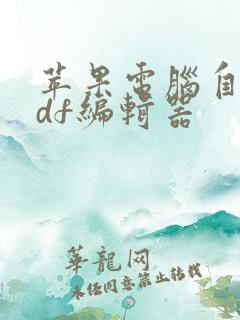 苹果電腦自
df編輯器
華龍网
未任同意禁止转载